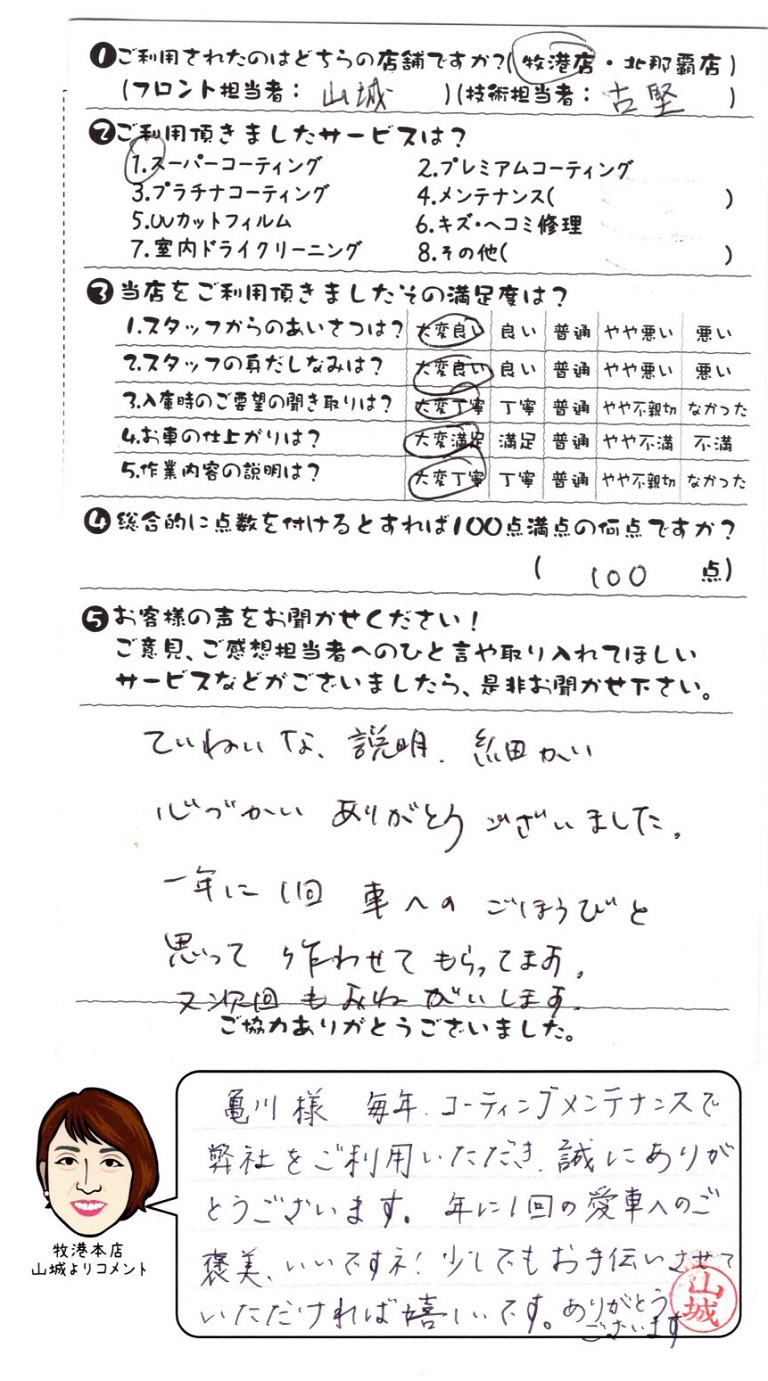 ❶ご利用されたのはどちらの店舗ですか?(牧港店・北那覇店)
(フロント担当者: 山城 )(技術担当者: 古堅 )
❷ご利用頂きましたサービスは?
1.スーパーコーティング 2.プレミアムコーティング
3.プラチナコーティング 4.メンテナンス( )
5.UVカットフィルム 6.キズ・ヘコミ修理
7.室内ドライクリーニング 8.その他( )
❸当店をご利用頂きましたその満足度は?
1.スタッフからのあいさつは? 大変良い 良い 普通 やや悪い 悪い
2.スタッフの身だしなみは? 大変良い 良い 普通 やや悪い 悪い
3.入庫時のご要望の聞き取りは? 大変丁寧 丁寧 普通 やや不親切 なかった
4.お車の仕上がりは? 大変満足 満足 普通 やや不満 不満
5.作業内容の説明は? 大変丁寧 丁寧 普通 やや不親切 なかった
❹総合的に点数を付けるとすれば100点満点の何点ですか?
( 100 点)
❺お客様の声をお聞かせください!
ご意見、ご感想担当者へのひと言や取り入れてほしい
サービスなどがございましたら、是非お聞かせ下さい。
ていねいな、説明、細かい
心づかい ありがとうございました。
一年に1回 車へのごほうびと
思って 作わせてもらってます。
又次回もおねがいします。
ご協力ありがとうございました。
亀川様 毎年、コーティングメンテナンスで
弊社をご利用いただき、誠にありが
とうございます。年に1回の愛車へのご
褒美、いいですネ!少しでもお手伝いさせて
いただければ嬉しいです。ありがとう
ございます
山城
牧港本店
山城よりコメント